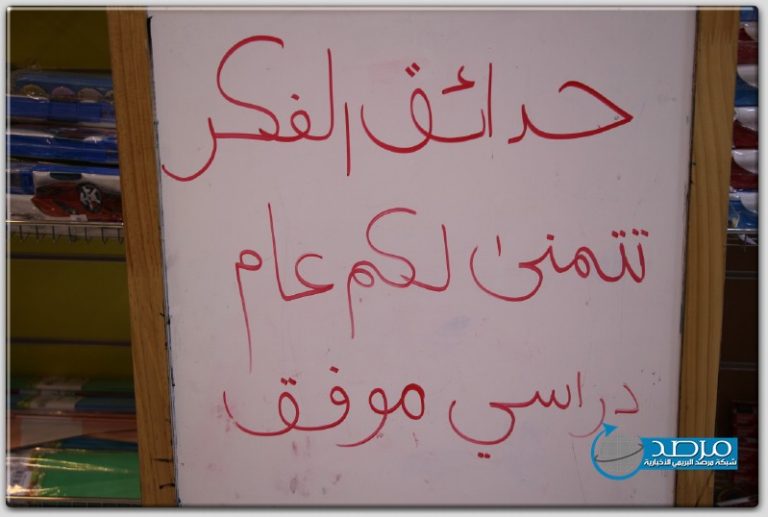 حدائق الفكر
تتمنى لكم عام
دراسي موفق
مرصد
شبكة مرصد البريمي الاخبارية